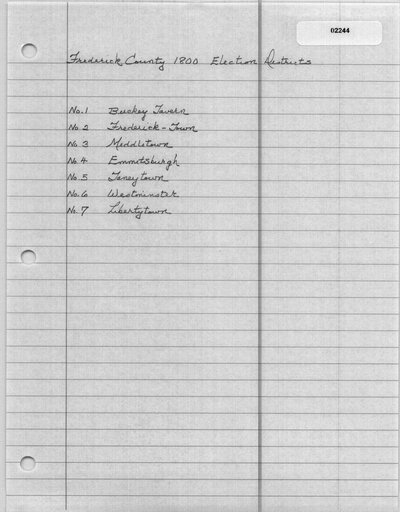 02244
Frederick County 1800 Election Districts
No. 1 Buckey Tavern
No 2 Frederick-Town
No 3 Middletown
No. 4 Emmitsburgh
No. 5 Taneytown
No. 6 Westminster
No. 7 Libertytown